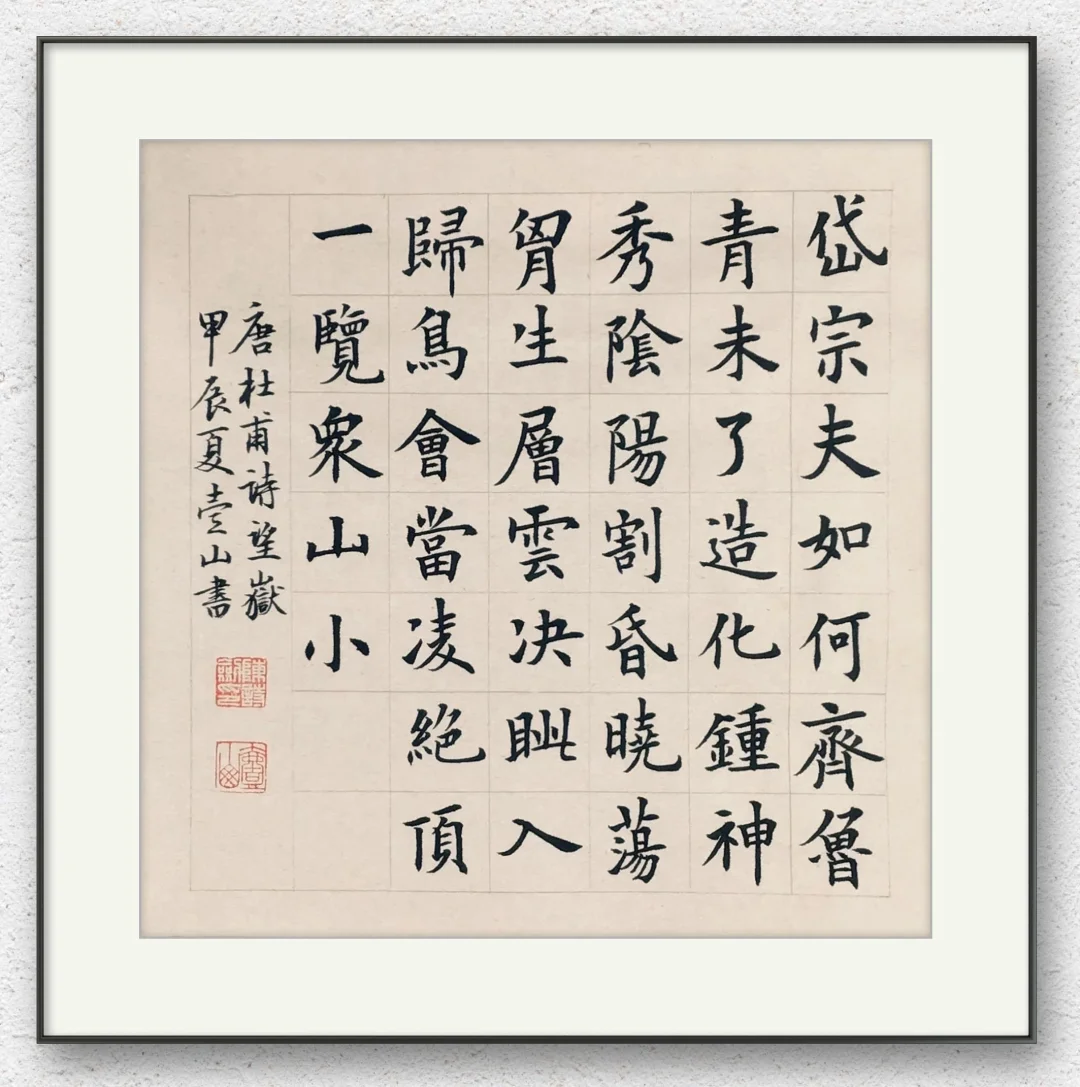 岱宗夫如何齊魯
青未了造化鍾神
秀陰陽割昏曉蕩
胷生層雲決眦入
歸鳥會當凌絶頂
一覽衆山小
唐杜甫詩望嶽
甲辰夏壹山書